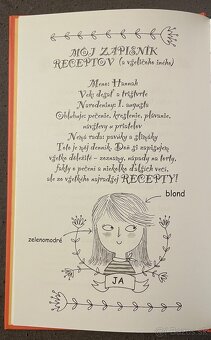 MÔJ ZÁPISNÍK
RECEPTOV (a všeličoho iného)
Meno: Hannah
Vek: desať a trištvrte
Narodeniny: 1. augusta
Obľubuje: pečenie, kreslenie, plávanie,
návštevy u priateľov
Nemá rada: pavúky a slimáky
Toto je môj denník. Doň si zapisujem
všetko dôležité – zoznamy, nápady na torty,
fakty o pečení a niekoľko ďalších vecí,
ale zo všetkého najradšej RECEPTY!
blond
zelenomodré
JA